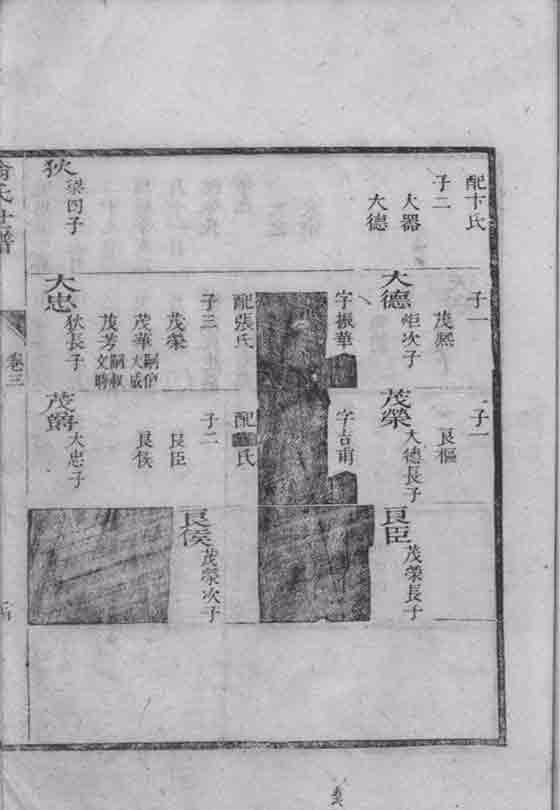 配卞氏
子二
大器
大德
狄
梁四子
子一
茂熙
大德
炬次子
字振華
配張氏
子三
茂榮
茂華嗣伯大成
茂芳嗣叔文時
大忠
狄長子
子一
良樞
茂榮
大德長子
字吉甫
配 氏
子二
良臣
良侯
茂爵
大忠子
良臣
茂榮長子
良侯
茂榮次子
氏世譜
卷三